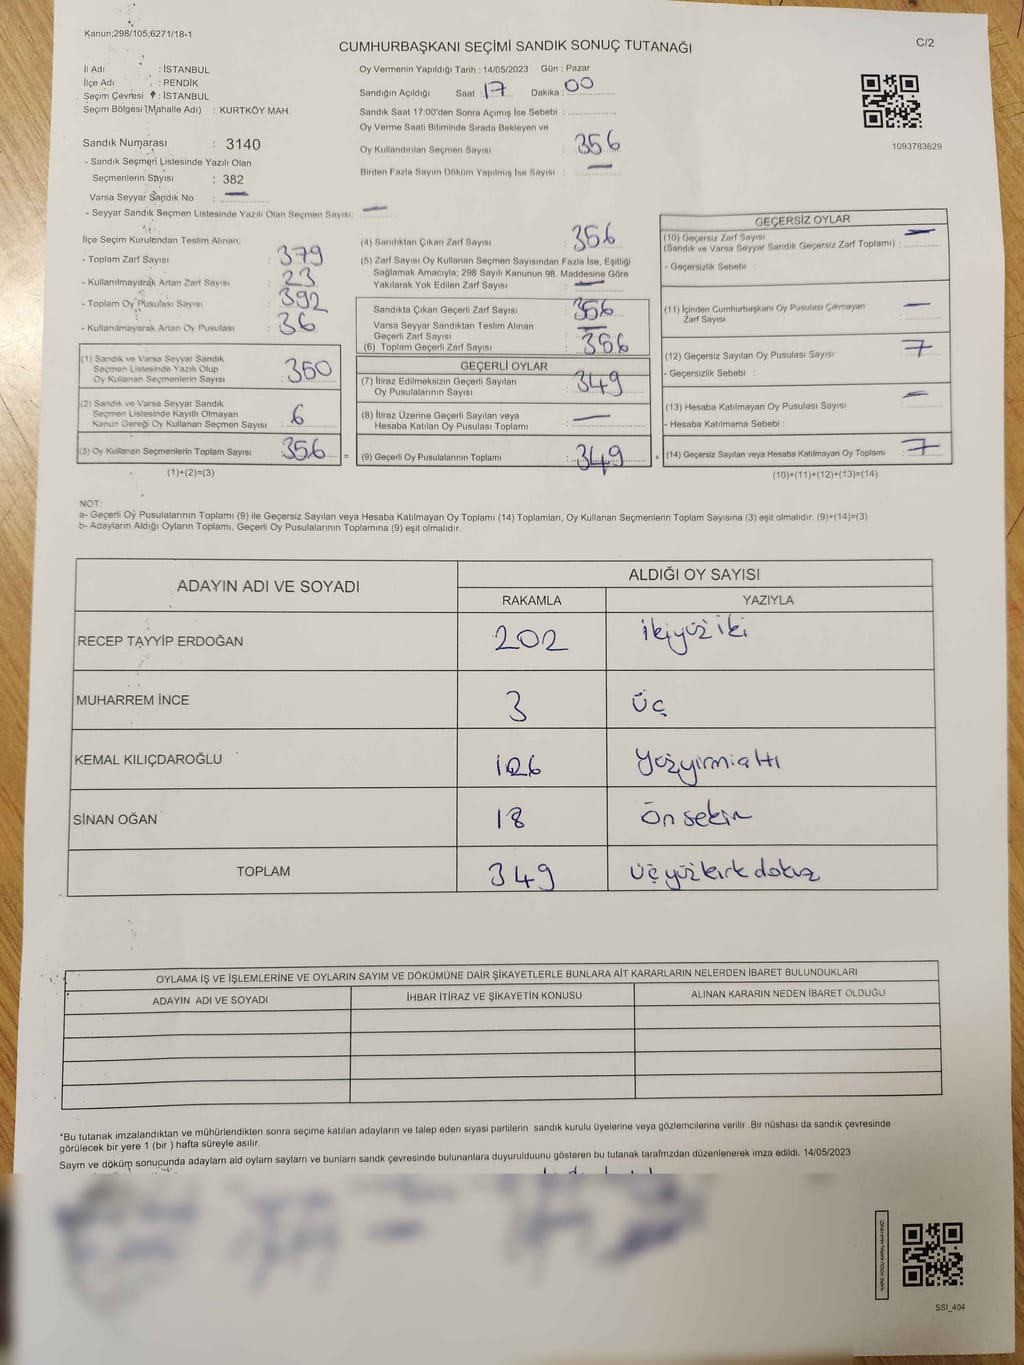 Kanun;298/105;6271/18-1
C/2
CUMHURBAŞKANI SEÇİMİ SANDIK SONUÇ TUTANAĞI
İl Adı : İSTANBUL
İlçe Adı : PENDİK
Seçim Çevresi : İSTANBUL
Seçim Bölgesi (Mahalle Adı) : KURTKÖY MAH.
Sandık Numarası : 3140
- Sandık Seçmen Listesinde Yazılı Olan
Seçmenlerin Sayısı : 382
Varsa Seyyar Sandık No : —
- Seyyar Sandık Seçmen Listesinde Yazılı Olan Seçmen Sayısı: —
Oy Vermenin Yapıldığı Tarih : 14/05/2023 Gün : Pazar
Sandığın Açıldığı Saat : 17 Dakika : 00
Sandık Saat 17:00'den Sonra Açımış İse Sebebi :
Oy Verme Saati Bitiminde Sırada Bekleyen ve
Oy Kullandırılan Seçmen Sayısı : 356
Birden Fazla Sayım Döküm Yapılmış İse Sayısı : —
1093783629
İlçe Seçim Kurulundan Teslim Alınan;
- Toplam Zarf Sayısı : 379
- Kullanılmayarak Artan Zarf Sayısı : 23
- Toplam Oy Pusulası Sayısı : 392
- Kullanılmayarak Artan Oy Pusulası : 36
(1) Sandık ve Varsa Seyyar Sandık
Seçmen Listesinde Yazılı Olup
Oy Kullanan Seçmenlerin Sayısı : 350
(2) Sandık ve Varsa Seyyar Sandık
Seçmen Listesinde Kayıtlı Olmayan
Kanun Gereği Oy Kullanan Seçmen Sayısı : 6
(3) Oy Kullanan Seçmenlerin Toplam Sayısı : 356 =
(1)+(2)=(3)
(4) Sandıktan Çıkan Zarf Sayısı : 356
(5) Zarf Sayısı Oy Kullanan Seçmen Sayısından Fazla İse, Eşitliği
Sağlamak Amacıyla; 298 Sayılı Kanunun 98. Maddesine Göre
Yakılarak Yok Edilen Zarf Sayısı : —
Sandıkta Çıkan Geçerli Zarf Sayısı : 356
Varsa Seyyar Sandıktan Teslim Alınan
Geçerli Zarf Sayısı : —
(6) Toplam Geçerli Zarf Sayısı : 356
GEÇERLİ OYLAR
(7) İtiraz Edilmeksizin Geçerli Sayılan
Oy Pusulalarının Sayısı : 349
(8) İtiraz Üzerine Geçerli Sayılan veya
Hesaba Katılan Oy Pusulası Toplamı : —
(9) Geçerli Oy Pusulalarının Toplamı : 349 +
GEÇERSİZ OYLAR
(10) Geçersiz Zarf Sayısı
(Sandık ve Varsa Seyyar Sandık Geçersiz Zarf Toplamı) : —
- Geçersizlik Sebebi :
(11) İçinden Cumhurbaşkanı Oy Pusulası Çıkmayan
Zarf Sayısı : —
(12) Geçersiz Sayılan Oy Pusulası Sayısı : 7
- Geçersizlik Sebebi :
(13) Hesaba Katılmayan Oy Pusulası Sayısı : —
- Hesaba Katılmama Sebebi :
(14) Geçersiz Sayılan veya Hesaba Katılmayan Oy Toplamı : 7
(10)+(11)+(12)+(13)=(14)
NOT:
a- Geçerli Oy Pusulalarının Toplamı (9) ile Geçersiz Sayılan veya Hesaba Katılmayan Oy Toplamı (14) Toplamları, Oy Kullanan Seçmenlerin Toplam Sayısına (3) eşit olmalıdır. (9)+(14)=(3)
b- Adayların Aldığı Oyların Toplamı, Geçerli Oy Pusulalarının Toplamına (9) eşit olmalıdır.
ADAYIN ADI VE SOYADI
ALDIĞI OY SAYISI
RAKAMLA YAZIYLA
RECEP TAYYİP ERDOĞAN 202 ikiyüz iki
MUHARREM İNCE 3 üç
KEMAL KILIÇDAROĞLU 126 Yüzyirmialtı
SİNAN OĞAN 18 Ön sekiz
TOPLAM 349 üçyüzkırk dokuz
OYLAMA İŞ VE İŞLEMLERİNE VE OYLARIN SAYIM VE DÖKÜMÜNE DAİR ŞİKAYETLERLE BUNLARA AİT KARARLARIN NELERDEN İBARET BULUNDUKLARI
ADAYIN ADI VE SOYADI İHBAR İTİRAZ VE ŞİKAYETİN KONUSU ALINAN KARARIN NEDEN İBARET OLDUĞU
*Bu tutanak imzalandıktan ve mühürlendikten sonra seçime katılan adayların ve talep eden siyasi partilerin sandık kurulu üyelerine veya gözlemcilerine verilir .Bir nüshası da sandık çevresinde
görülecek bir yere 1 (bir ) hafta süreyle asılır.
Sayım ve döküm sonucunda adayların aldı oyların sayları ve bunların sandk çevresinde bulunanlara duyurulduunu gösteren bu tutanak tarafmzdan düzenlenerek imza edildi. 14/05/2023
SSI_404